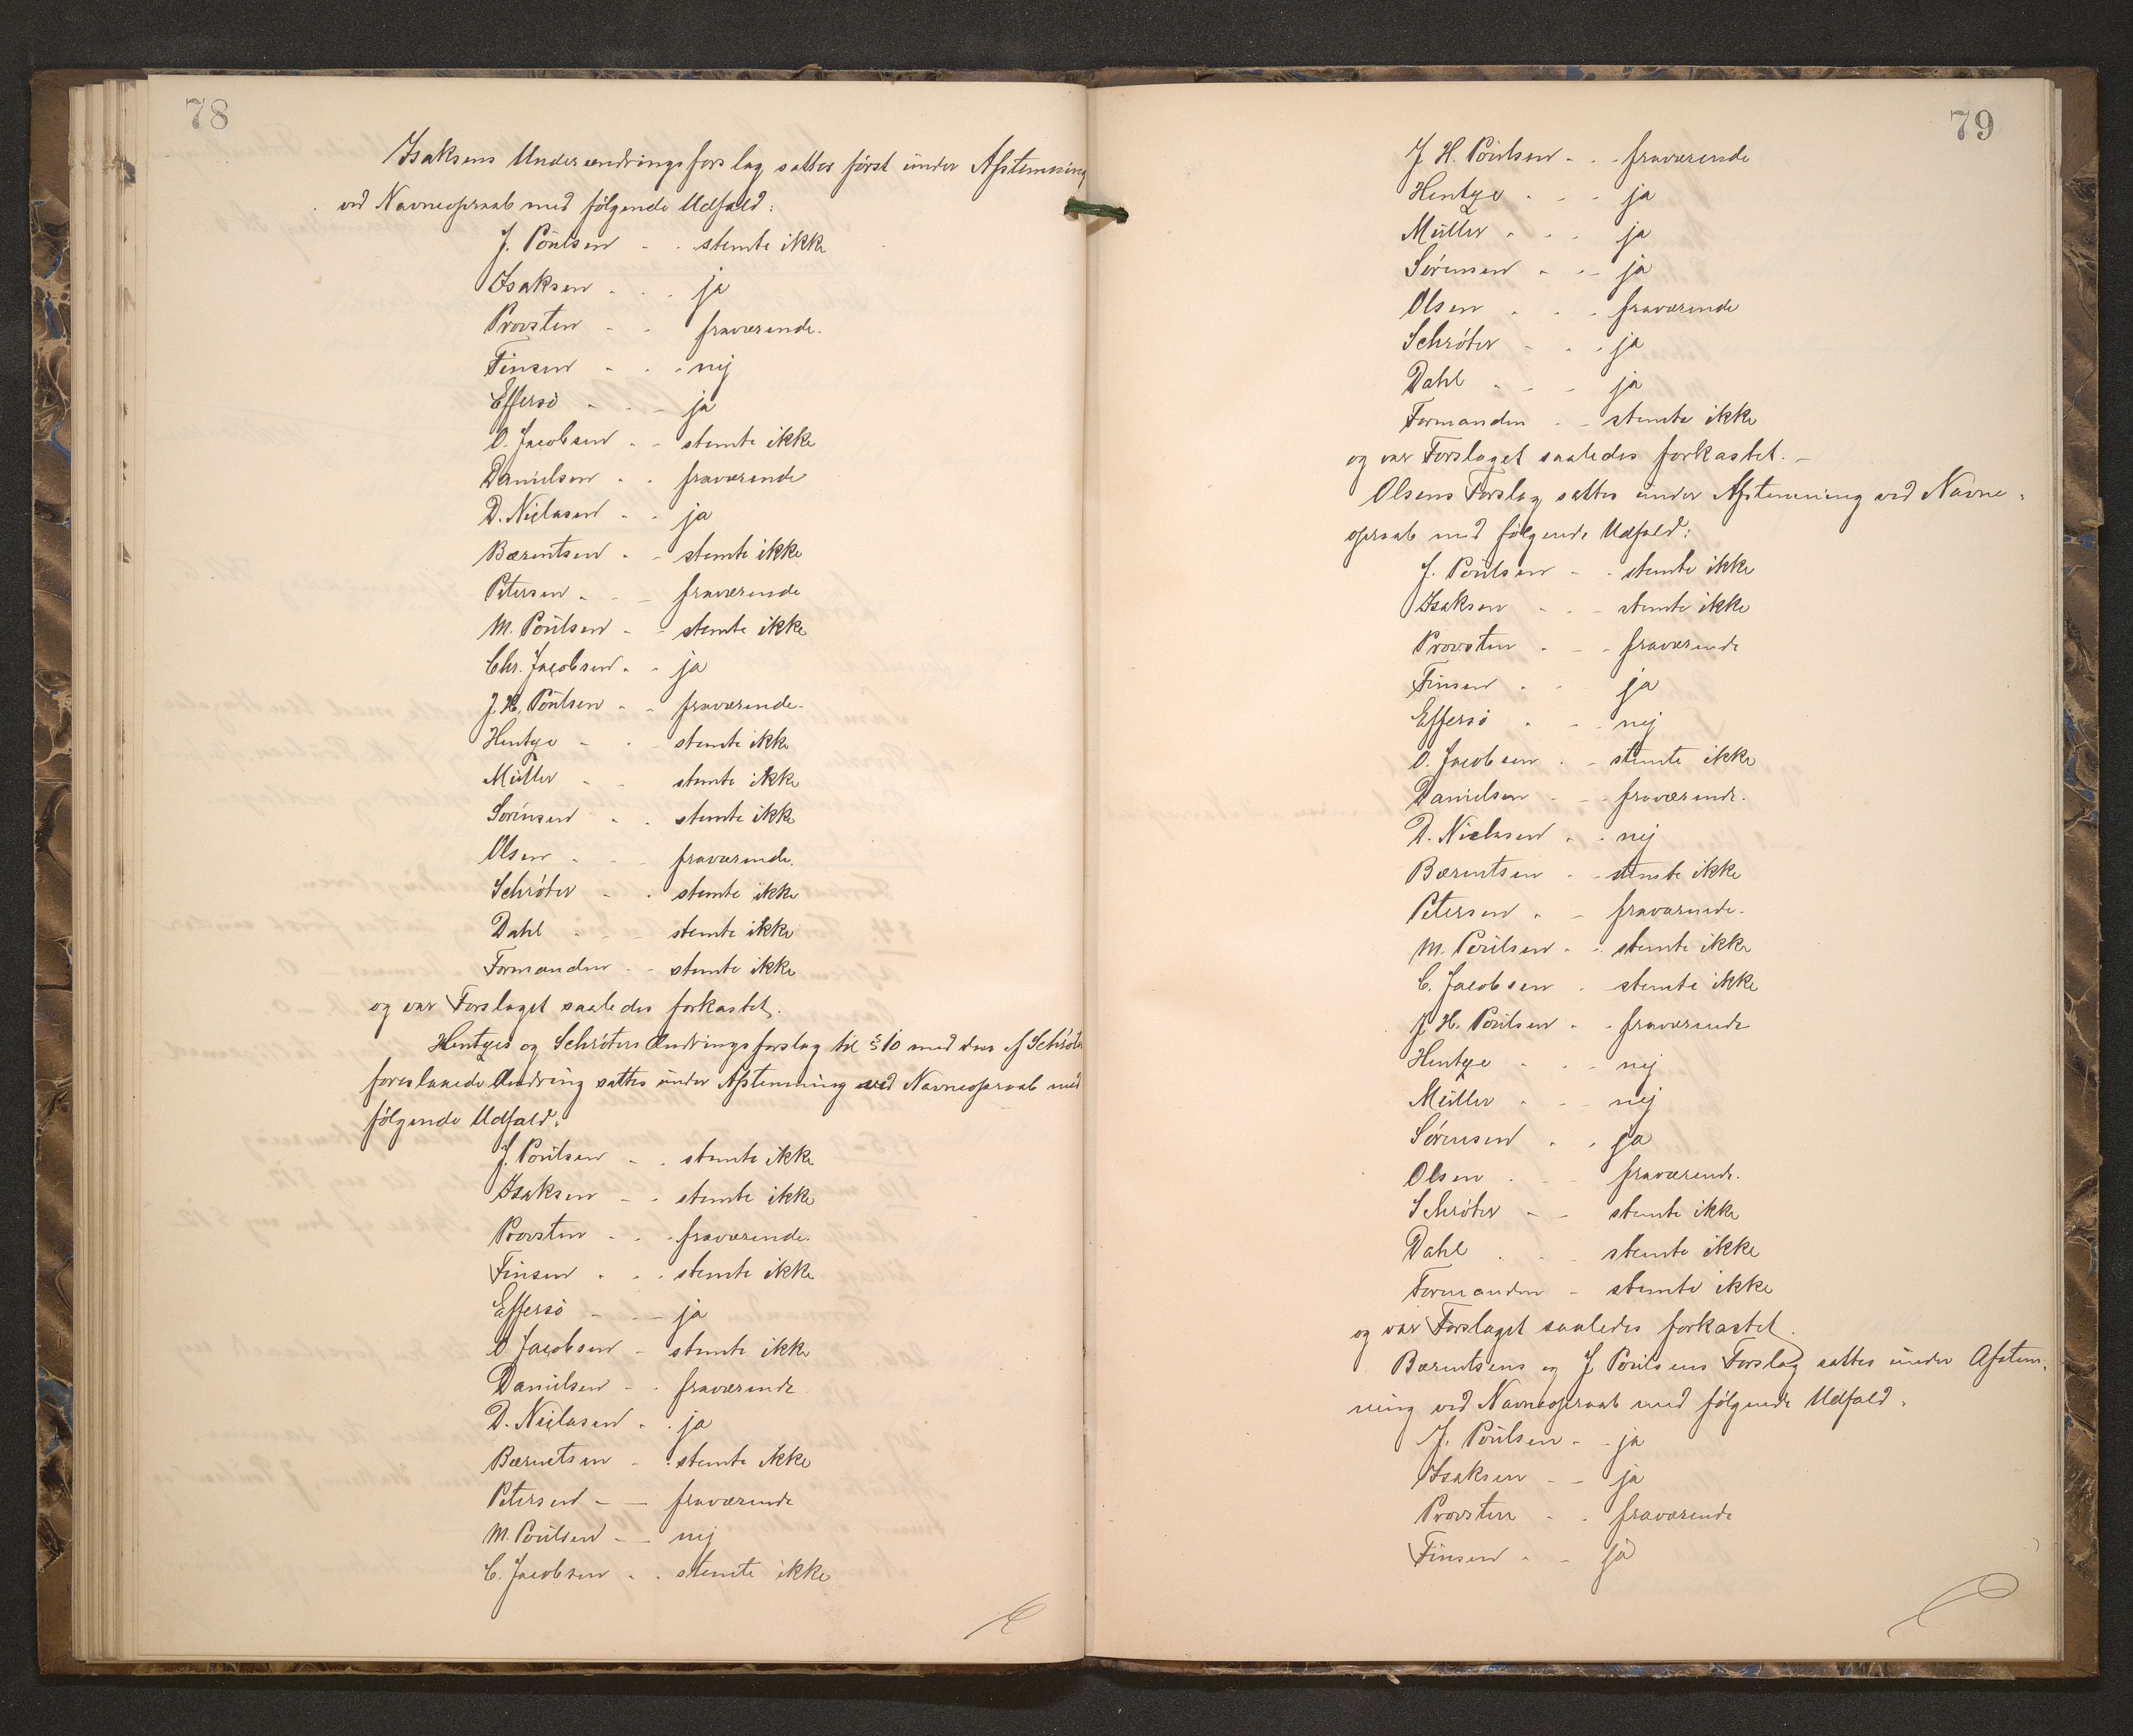 78
Isaksens Underændringsforslag sattes först under Afstemning
ved Navneopraab med fölgende Udfald:
J. Poulsen - - stemte ikke
Isaksen - - - ja
Provsten - - fraværende.
Finsen - - - nej
Effersö - - - ja
O. Jacobsen - - stemte ikke
Danielsen - - fraværende
D. Niclasen - - ja
Bærentsen - - stemte ikke
Petersen - - - fraværende
M. Poulsen - - stemte ikke
Chr. Jacobsen - - ja
J. H. Poulsen - - fraværende.
Hentze - - - stemte ikke
Müller - - stemte ikke
Sörensen - - stemte ikke
Olsen - - - fraværende.
Schröter - - stemte ikke
Dahl - - - stemte ikke
Formanden - - stemte ikke
og var Forslaget saaledes forkastet.
Hentzes og Schröters Ændringsforslag til § 10 med den af Schröter
foreslaaede Ændring sattes under Afstemning ved Navneopraab med
fölgende Udfald:
J. Poulsen - - stemte ikke
Isaksen - - stemte ikke
Provsten - - - fraværende.
Finsen - - - stemte ikke
Effersö - - - ja
O. Jacobsen - stemte ikke
Danielsen - - fraværende
D. Niclasen - - ja
Bærentsen - - stemte ikke
Petersen - - fraværende
M. Poulsen - - nej
C. Jacobsen - - stemte ikke
79
J. H. Poulsen - - - fraværende
Hentze - - - ja
Müller - - - ja
Sörensen - - - ja
Olsen - - - fraværende
Schröter - - - ja
Dahl - - - ja
Formanden - - stemte ikke
og var Forslaget saaledes forkastet. -
Olsens Forslag sattes under Afstemning ved Navne-
opraab med fölgende Udfald:
J. Poulsen - - stemte ikke
Isaksen - - - stemte ikke
Provsten - - - fraværende
Finsen - - ja
Effersö - - - nej
O. Jacobsen - - stemte ikke
Danielsen - - - fraværende.
D. Niclasen - - nej
Bærentsen - - stemte ikke
Petersen - - fraværende.
M. Poulsen - - stemte ikke
C. Jacobsen - stemte ikke
J. H. Poulsen - - fraværende
Hentze - - - nej
Müller - - - nej
Sörensen - - ja
Olsen - - fraværende.
Schröter - - stemte ikke
Dahl - - - stemte ikke
Formanden - stemte ikke
og var Forslaget saaledes forkastet.
Bærentsens og J. Poulsens Forslag sattes under Afstem-
ning ved Navneopraab med fölgende Udfald.
J. Poulsen - - ja
Isaksen - - ja
Provsten - - fraværende
Finsen - - ja